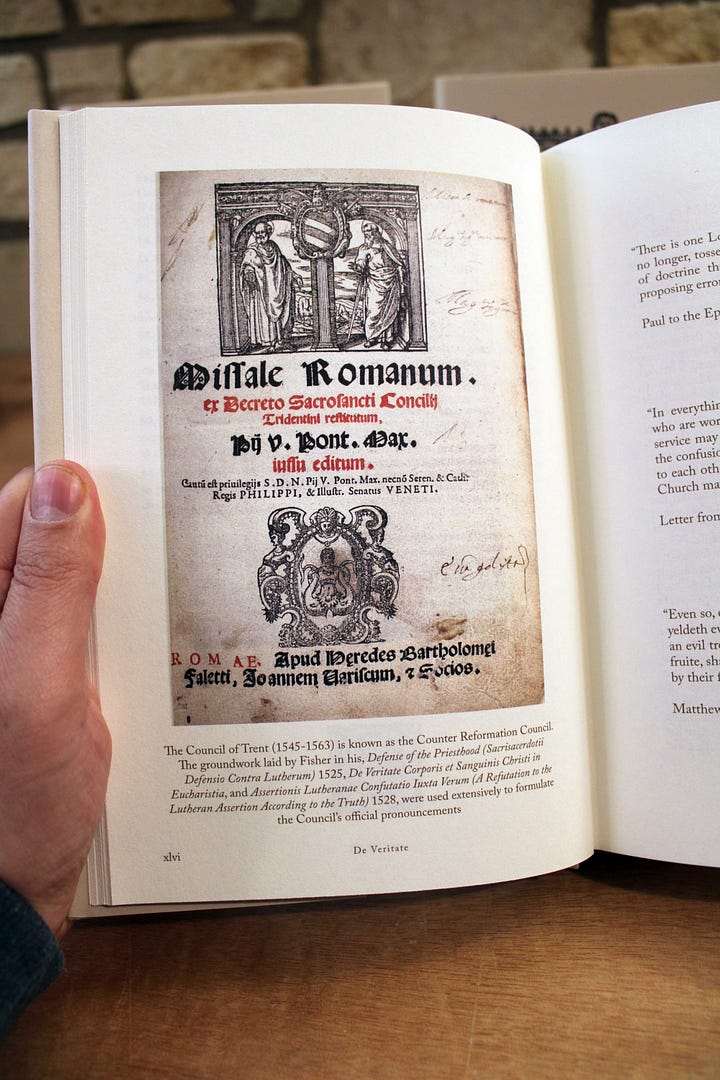 Missale Romanum.
ex Decreto Sacrosancti Concilij
Tridentini restitutum,
Pij V. Pont. Max.
iussu editum.
Cautũ est priuilegijs S. D. N. Pij V. Pont. Max. necnõ Seren. & Cath.
Regis PHILIPPI, & Illustr. Senatus VENETI.
ROMAE, Apud Heredes Bartholomei
Faletti, Joannem Variscum, & Socios.
The Council of Trent (1545-1563) is known as the Counter Reformation Council.
The groundwork laid by Fisher in his, Defense of the Priesthood (Sacrisacerdotii
Defensio Contra Lutherum) 1525, De Veritate Corporis et Sanguinis Christi in
Eucharistia, and Assertionis Lutheranae Confutatio Iuxta Verum (A Refutation to the
Lutheran Assertion According to the Truth) 1528, were used extensively to formulate
the Council's official pronouncements
xlvi
De Veritate
“There is one
no longer,
of doctrine
proposing
Paul to the
“In
who are
service may
the
to each
Church
Letter from
“Even so,
yeldeth
an evil
fruite,
by their